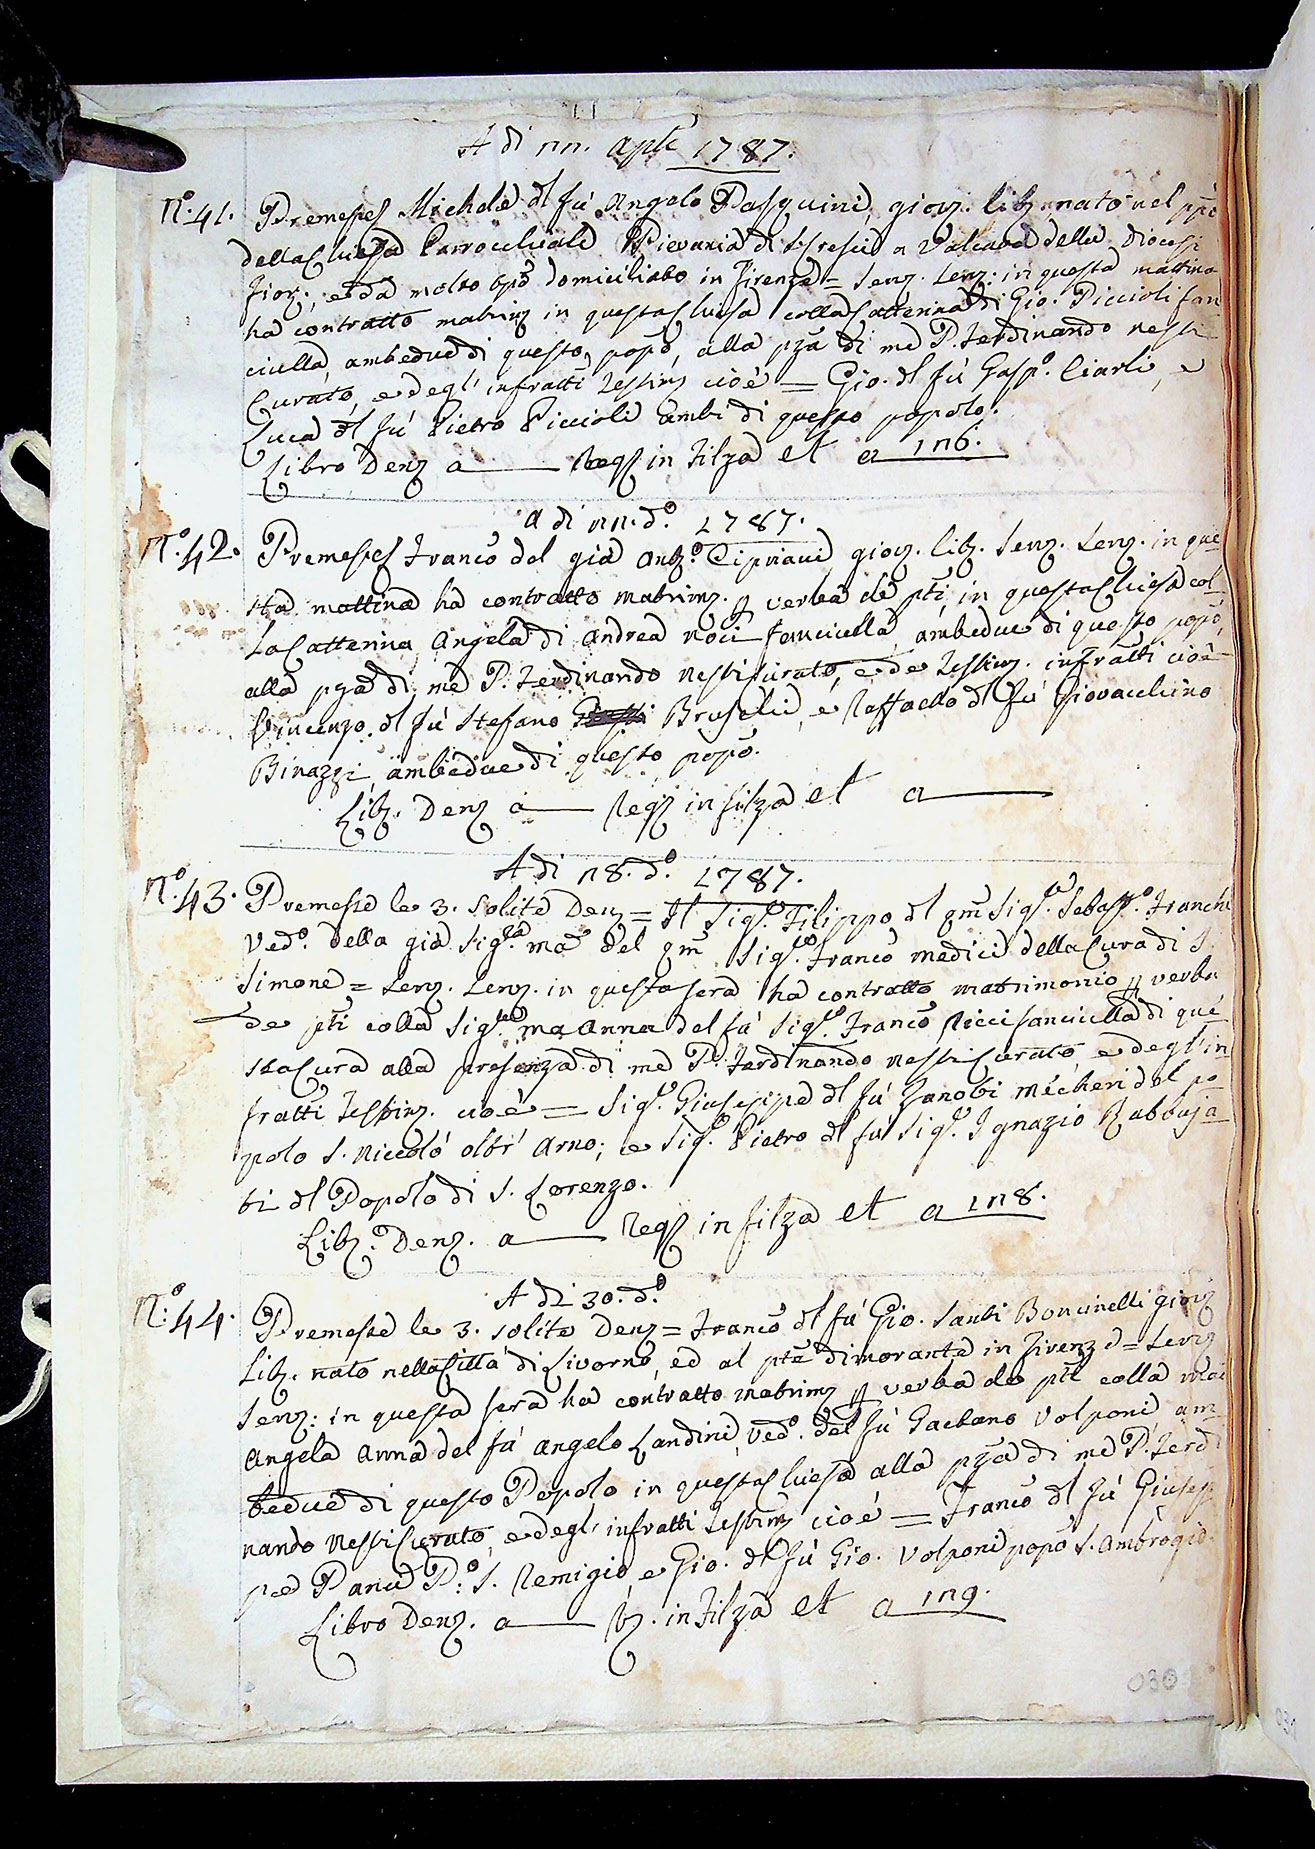 A di 22. Aple 1787.
N.º 41. Premesse Michele del fú Angelo Pasquini giov. lib. nato nel ppō
della Chiesa Parrocchiale Pievania di S. Cresci a Valcava della Diocesi
Fior., e da molto tpō domiciliato in Firenze = Serv. Serv. in questa mattina
ha contratto matrim in questa Chiesa colla Catterina di Gio. Piccioli fan
ciulla, ambedue di questo popō, alla pza di me P. Ferdinando Nesti
Curato, e degl' infratti Testim cioè = Gio. del fú Gasp.º Ciarli, e
Luca del fú Pietro Piccioli ambi di questo popolo.
Libro Denz a ___ Reqz in Filza et a 126.
A di 22. d.º 1787.
N.º 42. Premesse Francō del già Ant.º Cipriani giov. lib. Serv. Serv. in que
sta mattina ha contratto matrim. p verba de pti in questa Chiesa col
la Catterina Angela di Andrea Noci fanciulla, ambedue di questo popō,
alla pza di me P. Ferdinando Nesti Curato, e de Testim. infratti cioè
Vincenzo del fú Stefano Bruschi, e Raffaello del fú Giovacchino
Binazzi ambedue di questo popō.
Lib. Denz a ___ Reqz in filza et a ___
A di 28. d.º 1787.
N.º 43. Premesse le 3. solite Denz = Il Sig.r Filippo del qm Sig.r Sebast.º Franchi
Ved.º della già Sig.ra Mā del qm Sig.r Francō Medici della Cura di S.
Simone = Serv. Serv. in questa sera ha contratto matrimonio p verba
de pti colla Sig.ra Ma Anna del fú Sig.r Francō Ricci fanciulla di que
sta Cura alla presenza di me P. Ferdinando Nesti Curato e degl' in
fratti Testim. cioè = Sig.r Giuseppe del fú Zanobi Mecheri del po
polo S. Niccoló oltr' Arno; e Sig.r Pietro del fú Sig.r Ignazio Rabbuja
ti del Popolo di S. Lorenzo.
Lib. Denz. a ___ Reqz in filza et a 128.
A di 30. d.º
N.º 44. Premesse le 3. solite Denz = Francō del fú Gio. Santi Boncinelli giov
lib. nato nella Città di Livorno, ed al pte dimorante in Firenze = Serv
Serv: in questa sera ha contratto matrim p verba de pti colla Mā
Angela Anna del fú Angelo Landini Ved.º del fú Gaetano Volponi am
bedue di questo Popolo in questa Chiesa alla pza di me P. Ferdi
nando Nesti Curato, e degl' infratti Testim cioè = Francō del fú Giusep
pe P.º S. Remigio, e Gio. del fú Gio. Volponi popō S. Ambrogio.
Libro Denz. a ___ R. in Filza et a 129.
030